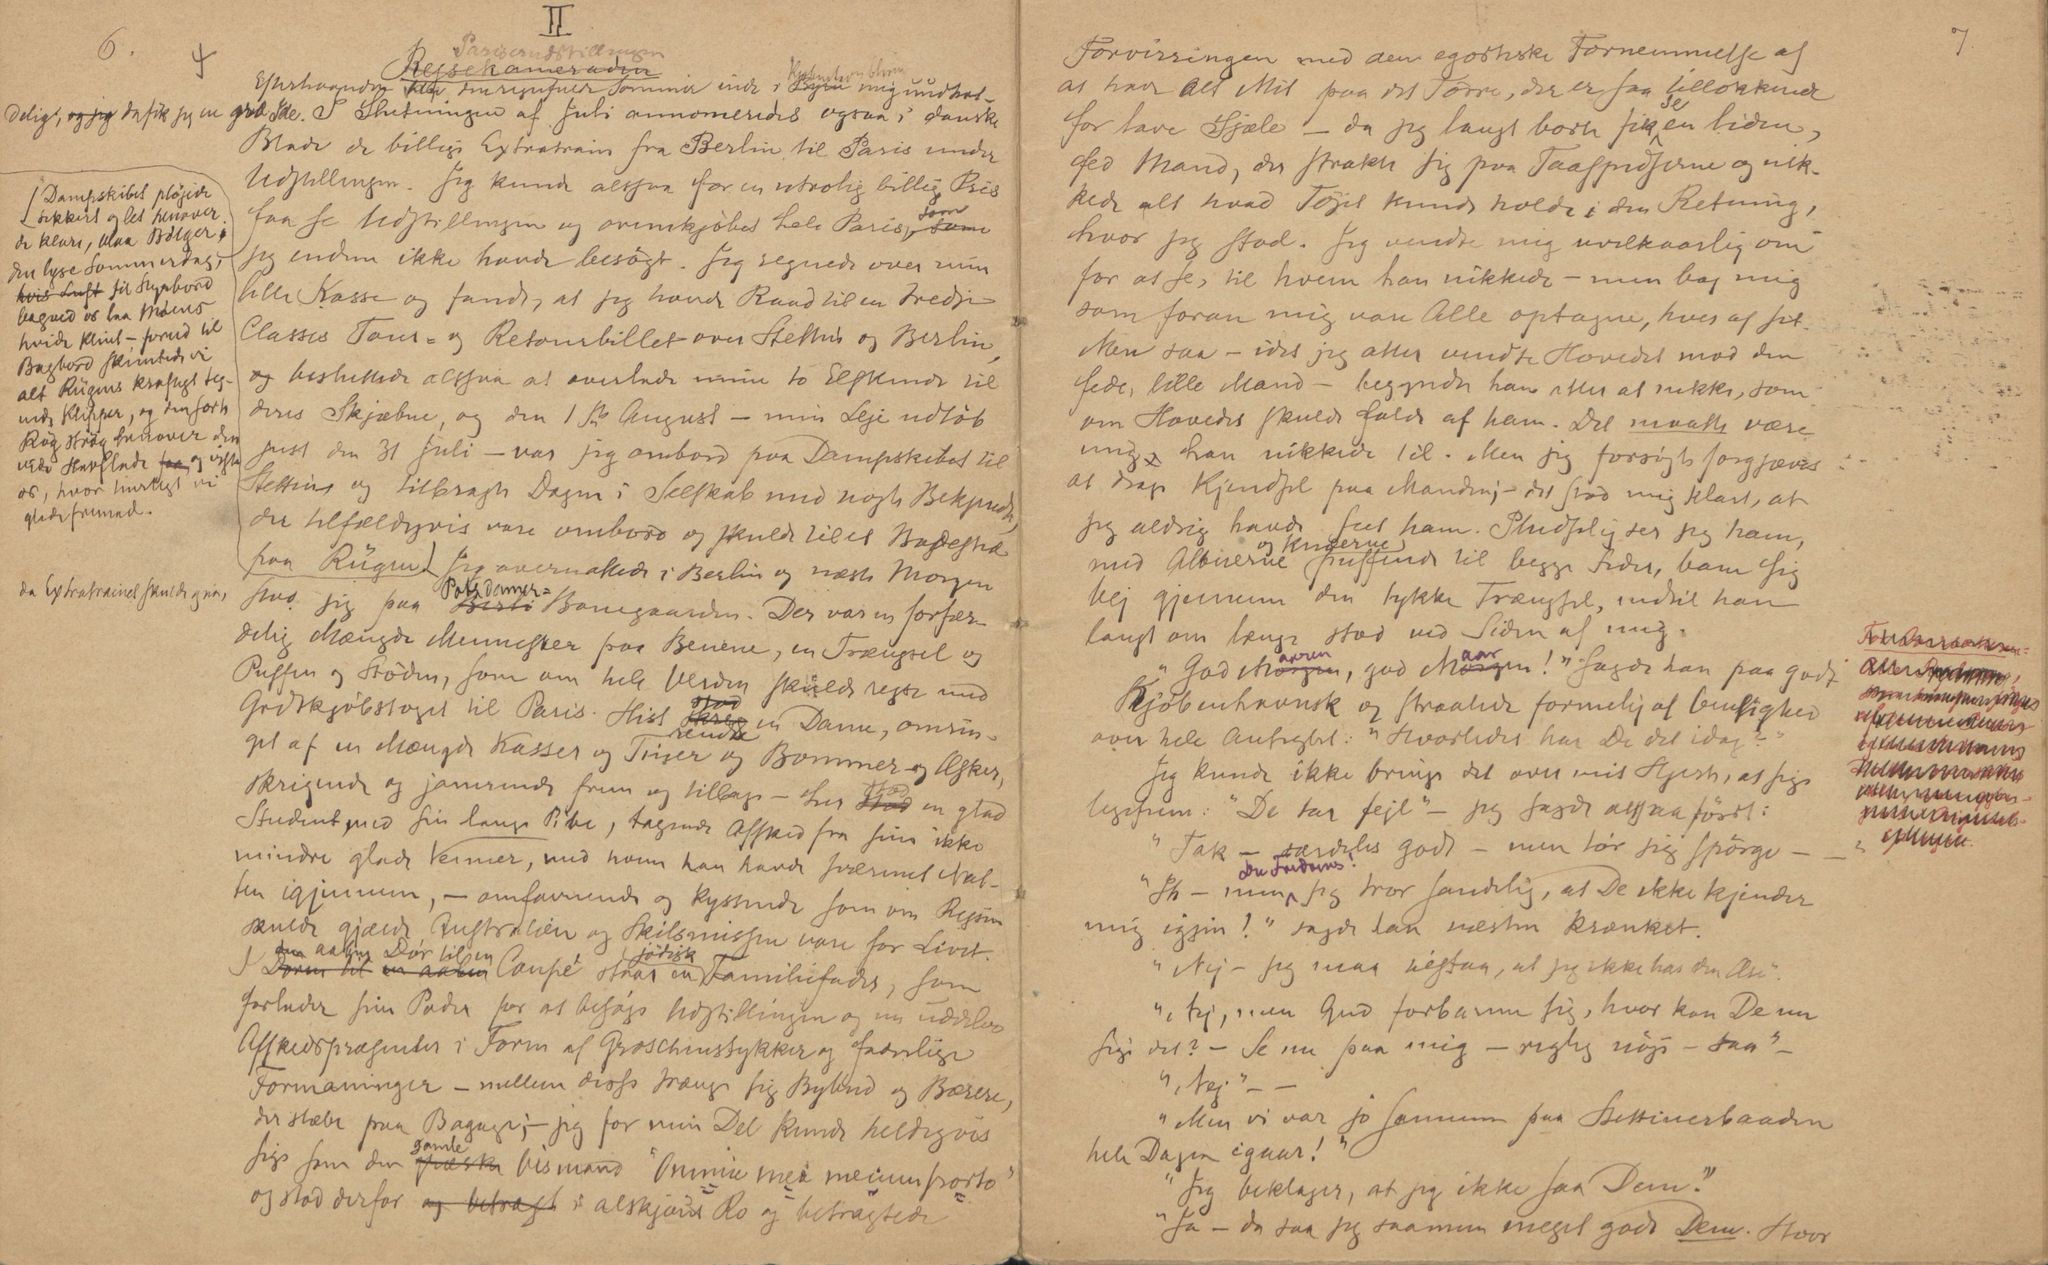 6.
II
Pariserudstillingen
Rejsekameraden
Efterhaanden blev den regnfulde Sommer inde i Byen mig uudhol-
Kjøbenhavn bleven
delig, og jeg da fik jeg en god Ide. I Slutningen af Juli annonceredes ogsaa i danske
Blade de billige Extratrains fra Berlin til Paris under
Udstillingen. Jeg kunde altsaa for en utrolig billig Pris
faa se Udstillingen og ovenikjøbet hele Paris, som
jeg endnu ikke havde besøgt. Jeg regnede over min
lille Kasse og fandt, at jeg havde Raad til en tredje
Classes Tour- og Retourbillet over Stettin og Berlin,
og besluttede altsaa at overlade mine to Elskende til
deres Skjæbne, og den 1ste August – min Leje udløb
just den 31 Juli – var jeg ombord paa Dampskibet til
Stettin og tilbragte Dagen i Selskab med nogle Bekjendte,
der tilfældigvis vare ombord og skulde til et Badested
paa Rügen. Jeg overnattede i Berlin og næste Morgen
[Dampskibet pløjede
sikkert og let henover
de klare, blaa Bølger i
den lyse Sommerdag;
hvis Luft til Styrbord
bagved os laa Møens
hvide Klint – forud til
Bagbord skimtede vi
alt Rügens kraftigt teg-
nede Klipper, og den sorte
Røg strøg henover den
vide Havflade og viste
os, hvor hurtigt vi
gled fremad.
da Extratrainet skulde gaa,
stod jeg paa Potsdamer-
Banegaarden. Der var en forfær-
delig Mængde Mennesker paa Benene, en Trængsel og
Puffen og Støden, som om hele Verden skulde rejse med
Godtkjøbstoget til Paris. Hist stod en Dame, omrin-
get af en Mængde Kasser og Tiner og Bommer og Æsker,
skrigende og jamrende frem og tilbage – her stod en glad
Student med sin lange Pibe, tagende Afsked fra sine ikke
mindre glade Venner, med hvem han havde sværmet Nat-
ten igjennem, – omfavnende og kyssende som om Rejsen
skulde gjælde Australien og Skilsmissen vare for Livet.
I den aabne Dør til en Coupé staar en jødisk Familiefader, som
forlader sine Poder for at besøge Udstillingen og nu uddeler
Afskedspræsenter i Form af Groschenstykker og faderlige
Formaninger – mellem disse trænge sig Bybud og Bærere,
der slæbe paa Bagage; – jeg for min Del kunde heldigvis
sige som den gamle Vismand "Omnia mea mecum porto"
og stod derfor og betragt i alskjøns Ro og betragtede
7.
Forvirringen med den egoistiske Fornemmelse af
at have Alt Mit paa det Tørre, der er saa tillokkende
for lave Sjæle – da jeg langt borte fik se en liden,
fed Mand, der strakte sig paa Taaspidserne og nik-
kede alt hvad Tøjet kunde holde i den Retning,
hvor jeg stod. Jeg vendte mig uvilkaarlig om
for at se, til hvem han nikkede – men bag mig
som foran mig vare Alle optagne, hver af sit.
Men saa – idet jeg atter vendte Hovedet mod den
fede, lille Mand – begyndte han atter at nikke, som
om Hovedet skulde falde af ham. Det maatte være
mig, han nikkede til. Men jeg forsøgte forgjæves
at drage Kjendsel paa Manden; – det stod mig klart, at
jeg aldrig havde seet ham. Pludselig ser jeg ham,
med Albuerne og Knæerne puffende til begge Sider, bane sig
Vej gjennem den tykke Trængsel, indtil han
langt om længe stod ved Siden af mig.
"God Morgen, god Morgen!" sagde han paa godt
Kjøbenhavnsk og straalede formelig af Venlighed
over hele Ansigtet: "Hvorledes har De det idag?"
Jeg kunde ikke bringe det over mit Hjerte, at sige
ligefrem: "De tar fejl" – jeg sagde altsaa først:
"Tak – særdeles godt – men tør jeg spørge – – "
"Ih – men du Fredens! jeg tror sandelig, at De ikke kjender
mig igjen!" sagde han næsten krænket.
"Nej – jeg maa tilstaa, at jeg ikke har den Ære".
"Nej, men Gud forbarme sig, hvor kan De nu
sige det? – Se nu paa mig – rigtig nøje – saa" –
"Nej" – –
"Men vi var jo sammen paa Stettinerbaaden
hele Dagen igaar!"
"Jeg beklager, at jeg ikke saa Dem."
"Ja – da saa jeg saamen meget godt Dem. Hvor